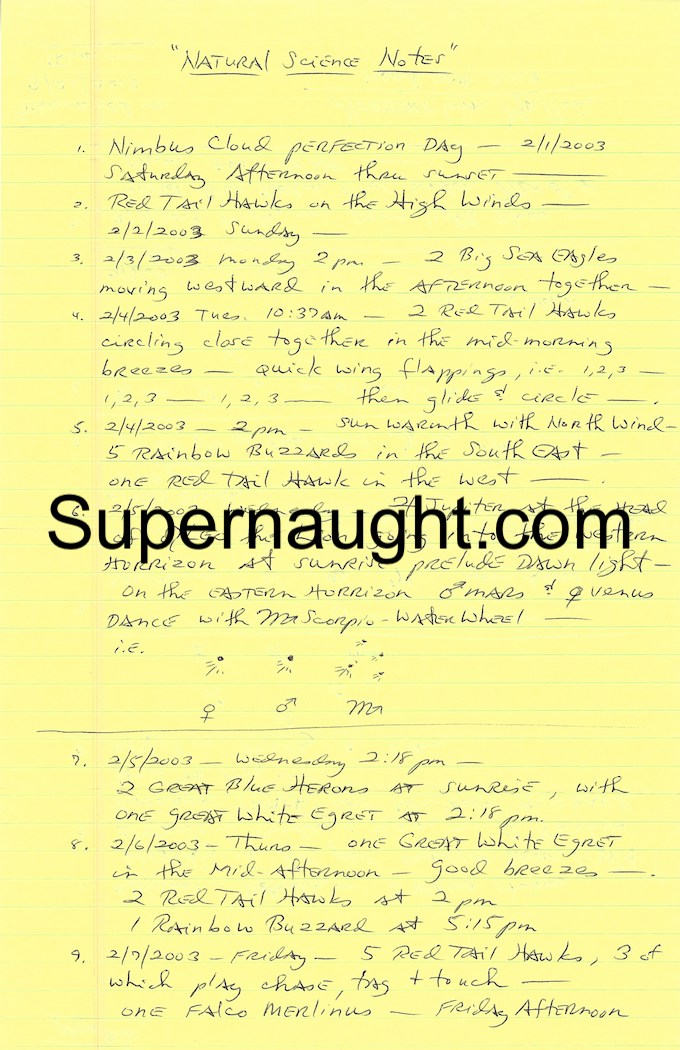 "Natural Science Notes"
1. Nimbus Cloud perfection Day — 2/1/2003
Saturday Afternoon thru sunset —
2. Red Tail Hawks on the High Winds —
2/2/2003 Sunday —
3. 2/3/2003 monday 2 pm — 2 Big Sea Eagles
moving westward in the Afternoon together —
4. 2/4/2003 Tues. 10:37am — 2 Red Tail Hawks
circling close together in the mid-morning
breezes — quick wing flappings, i.e. 1,2,3 —
1,2,3 — 1,2,3 — then glide & circle —.
5. 2/4/2003 — 2pm — sun warmth with North Wind —
5 Rainbow Buzzards in the South East —
one Red Tail Hawk in the west —.
6. 2/5/2003 ♃ Jupiter at the Head
Supernaught.com
the Western
Horrizon at sunrise prelude Dawn light —
on the Eastern Horrizon ♂ mars & ♀ venus
Dance with ♏ Scorpio - Water Wheel —
i.e.
♀ ♂ ♏
7. 2/5/2003 — Wednesday 2:18 pm —
2 Great Blue Herons at sunrise, with
one great White Egret at 2:18 pm.
8. 2/6/2003 — Thurs — one Great White Egret
in the Mid-Afternoon — Good breezes —.
2 Red Tail Hawks at 2 pm
1 Rainbow Buzzard at 5:15 pm
9. 2/7/2003 — Friday — 5 Red Tail Hawks, 3 of
which play chase, tag + touch —
one Falco Merlinus — Friday Afternoon